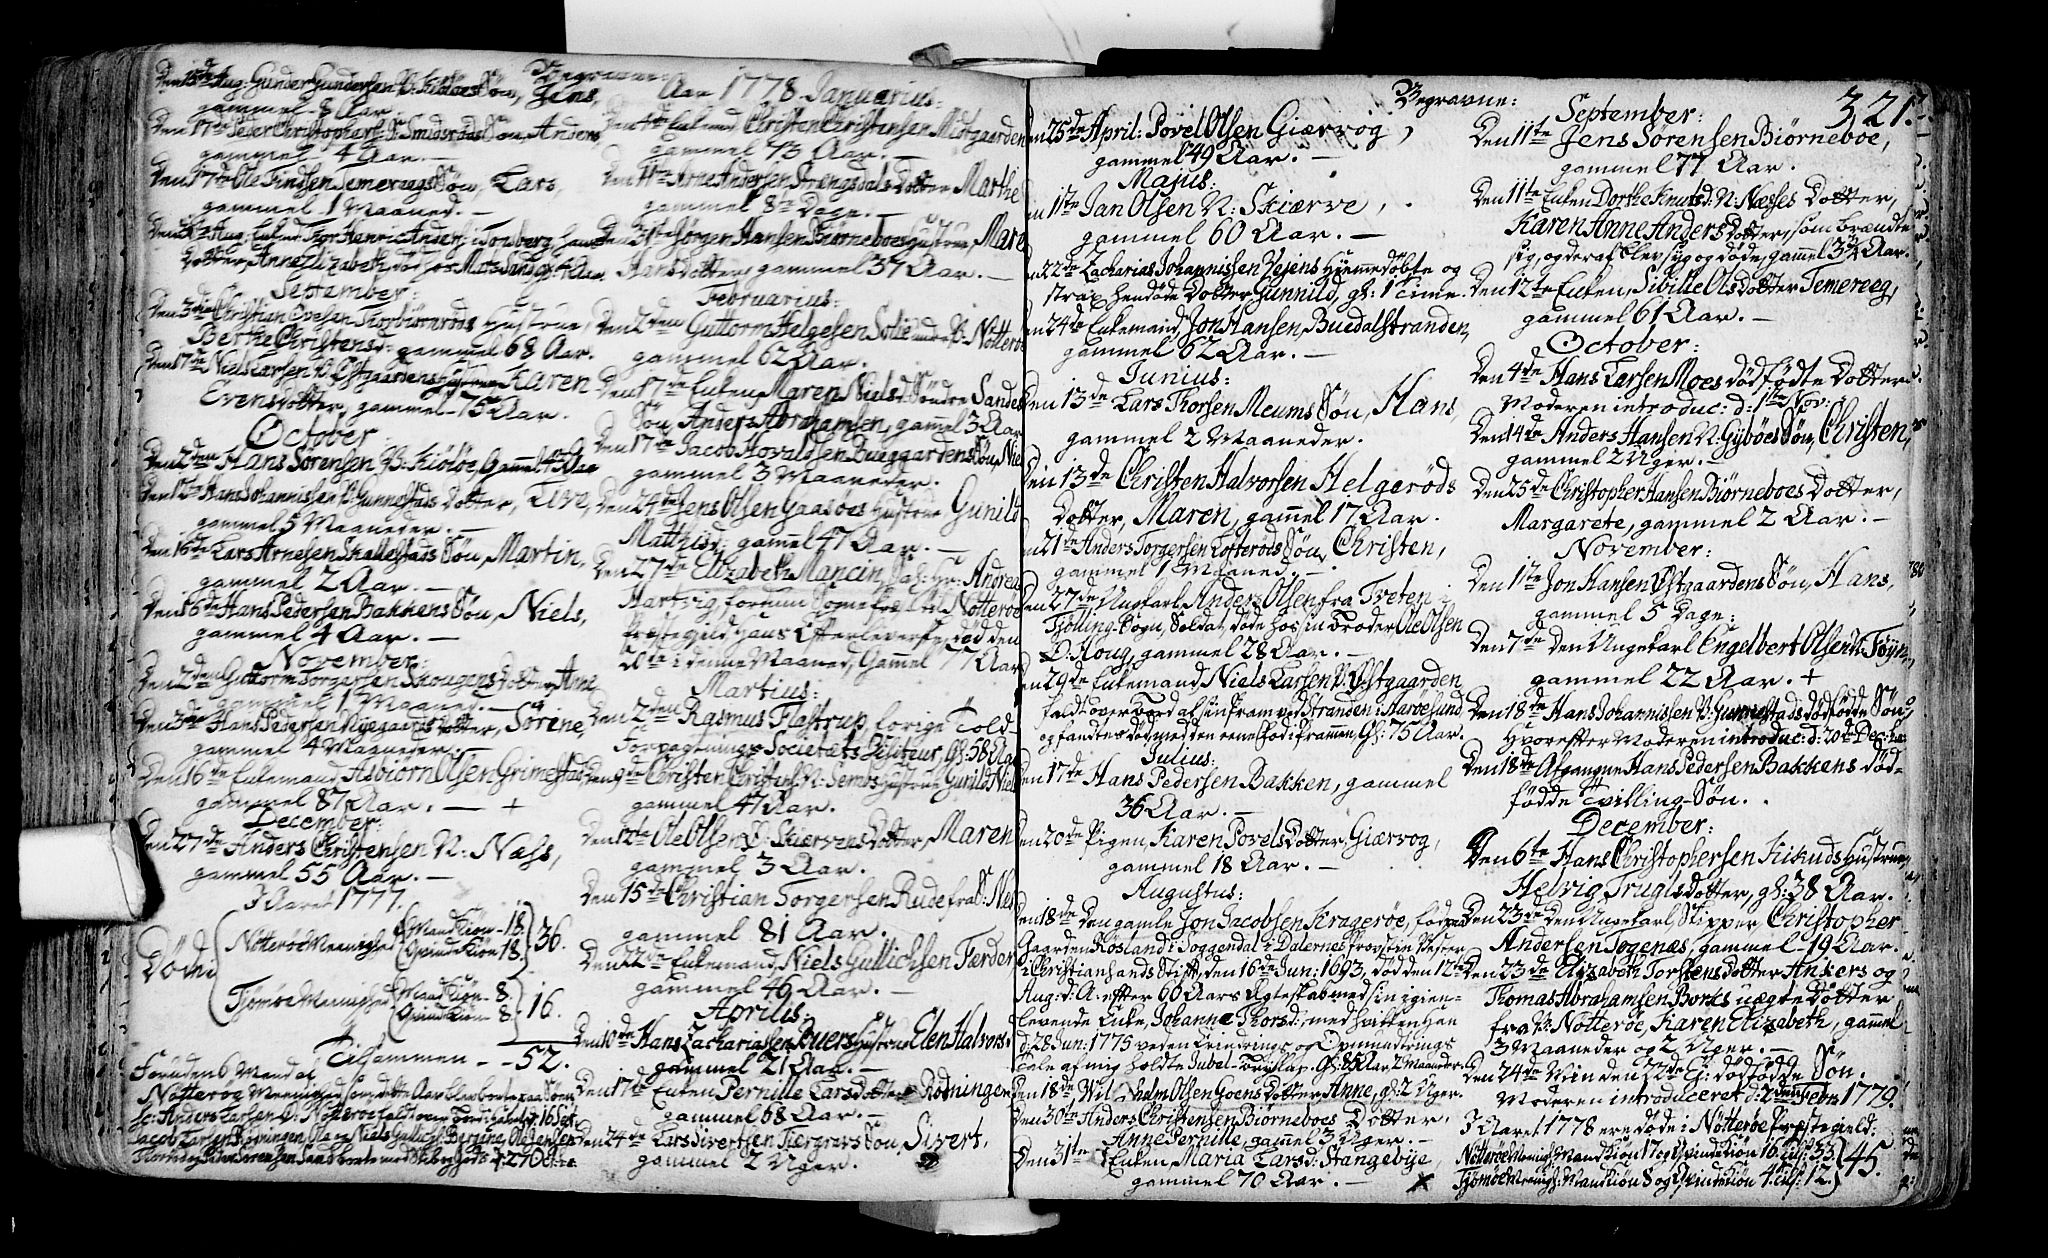 Begravne:
Den 15de Aug: Gunder Gundersen V: Kiøløes Søn, Jens,
gammel 8 Aar.
Den 17de Peder Christophers: S: Smidsrøds Søn, Anders
gammel 4 Aar. —
Den 17de Ole Findsen Temereegs Søn, Lars,
gammel 1 Maaned. —
Dotter, Anne Elizabeth, død hos Mats Sand, g: 4 Aar.
September:
Den 3die Christian Evesen Thorbiørnrøds Hustrue,
Berthe Christensd: gammel 68 Aar.
Den 17de Niels Larsen V: Østgaardens Hustrue Karen
Evensdotter, gammel 75 Aar.
October:
Den 2den Hans Sørensen V: Kiøløe, Gammel
Den 12te Hans Johannissen V: Gunnestads Dotter, Live,
gammel 5 Maaneder. —
Den 16de Lars Arnesen Skallestads Søn, Martin,
gammel 2 Aar. —
Den 16de Hans Pedersen Bakkens Søn, Niels,
gammel 4 Aar. —
November:
Den 2den Guttorm Torgersen Skougens Dotter, Anne
gammel 1 Maaned. —
Den 3die Hans Pedersen Nyegaards Dotter, Sørine,
gammel 4 Maaneder. —
Den 16de Enkemand, Asbiørn Olsen Grimestad,
gammel 87 Aar. — +
December:
Den 27de Anders Christensen N: Næss,
gammel 55 Aar. —
I Aaret 1777.
Døde i
Nøtterøe Meenighed Mandkiøn - 18. Qvindekiøn 18. 36.
Tjømøe Meenighed Mandkiøn - 8. Qvindekiøn - 8. 16.
Tilsammen - - 52.
Foruden 6 Mænd af
Nøtterøe Meenighed som dette Aar bleve borte paa Søen
Aar 1778. Januarius:
Den 4de Enkemd Christen Christensen Mitgaarden
gammel 73 Aar. —
Den 11te Arne Andersen Strengsdals Dotter, Marthe
gammel 8te Dage. —
Den 31te Jørgen Hansen Biørneboes Hustrue, Maren
Hansdotter, gammel 37 Aar. —
Februarius:
Den 2den Guttorm Helgesen Solie under V: Nøtterøe
gammel 62 Aar. —
Den 17de Enken Maren Nielsd: Søndre Sandes
Søn, Anders Abrahamsen, gammel 3 Aar
Den 17de Jacob Hovaldsen Bueggardens Søn, Niels
gammel 3 Maaneder.
Den 24de Jens Olsen Gaasøes Hustrue Gunild
Matthisd: gammel 47 Aar. —
Den 27de Elizabeth Mancin, Sal: Hr: Andreas
Hartvig, fordum Sognepræst til Nøtterøe
Præstegield, hans Efterleverske, død den
20de i denne Maaned, Gammel 77 Aar
Martius:
Den 2den Rasmus Flastrup, forige Told-
Forpagtnings Societæts Visiteur, Gl: 58 Aar
Den 9de Christen Christens: N: Sembs Hustrue Gunild Niels
gammel 47 Aar.
Den 12te Ole Olsen V: Skiervens Dotter, Maren
gammel 3 Aar.
Den 15de Christian Torgersen Rude fra S: Nes
gammel 81 Aar.
Den 22de Enkemand, Niels Gullichsen Færder
gammel 46 Aar. —
Aprilis:
Den 10de Hans Zachariassen Buers Hustrue Elen Halvorsd:
gammel 21 Aar. —
Den 17de Enken Pernille Larsdotter Rødningen
gammel 68 Aar. —
Den 24de Lars Sivertsen Tiergravs Søn, Sivert,
gammel 2 Uger.
Begravne:
321.
Den 25de April: Povel Olsen Giærvog,
gammel 49 Aar. —
Majus:
Den 17te Jan Olsen V: Skiærve,
gammel 60 Aar. —
Den 22de Zacharias Johannissen Vejens Hiemmedøbte og
strax hendøde Dotter Gunnild, gl: 1 Time.
Den 24de Enkemand, Jon Hansen, Buedalstranden,
gammel 62 Aar. —
Junius:
Den 13de Lars Thorsen Meums Søn, Hans,
gammel 2 Maaneder.
Den 13de Christen Halvorsen Helgerøds
Dotter, Maren, gammel 17 Aar.
Den 21te Anders Torgersen Lofterøds Søn, Christen,
gammel 1 Maaned. —
Den 27de Ungkarl Anders Olsen fra Tveten i
Tjølling-Sogn, Soldat, døde hos sin Broder Ole Olsen
Ø: Houg, gammel 28 Aar. —
Den 29de Enkemand Niels Larsen V: Østgaarden
faldt over Bord af sin Pram ved Stranden i Harøesund
og fandtes død med den eene Fod i Prammen, Gl: 75 Aar.
Julius:
Den 17de Hans Pedersen Bakken, gammel
36 Aar. —
Den 20de Pigen, Karen Povelsdotter, Giærvog,
gammel 18 Aar. —
Augustus:
Den 18de Den gamle Jon Jacobsen Kragerøe, fød paa
Gaarden Rosland i Soggendal i Dalernes Provstie Pesten
i Christiansands Stift, den 16de Jun: 1693, død den 12te
Aug: d: A: efter 60 Aars Ægteskab med sin igien-
levende Enke, Johanne Thorsd: med hvilken han
d: 28 Jun: 1775 ved en Erindrings og Opmuntrings
Tale af mig holdte Jubel-Bryllup. Gl: 85 Aar 2 Maaneder.
Den 18de Wilhelm Olsen Goens Dotter, Anne, gl: 2 Uger.
Den 30te Anders Christensen Biørneboes Dotter,
Anne Pernille, gammel 3 Uger. —
Den 31te Enken Maria Larsd: Stangebye,
gammel 70 Aar. —
September:
Den 11te Jens Sørensen Biørneboe,
gammel 77 Aar.
Den 11te Enken Dorthe Knutsd: N: Næsses Dotter,
Karen Anne Andersdotter, som brændte
sig, og deraf blev syg og døde, gammel 3¾ Aar.
Den 12te Enken, Sibille Olsdotter Temereeg,
gammel 61 Aar. —
October:
Den 4de Hans Larsen Moes dødfødte Dotter
Moderen introduc: d: 1ste Nov:
Den 14de Anders Hansen N: Gyböes Søn, Christen,
gammel 2 Uger. —
Den 25de Christopher Hansen Biørneboes Dotter,
Margarete, gammel 2 Aar. —
November:
Den 1ste Jon Hansen Østgaardens Søn, Hans,
gammel 5 Dage:
Den 7de Den Ungekarl Engelbert Olsen N: Føyn,
gammel 22 Aar. +
Den 18de Hans Johannissen V: Gunnestads dødfødde Søn,
Hvorefter Moderen introduc: d: 20de Dec:
Den 18de Afgangne Hans Pedersen Bakkens død-
fødde Tvilling-Søn.
December:
Den 6te Hans Christophersen Kikuds Hustrue,
Helvig Trugelsdotter, gl: 38 Aar.
Den 23de Den Ungekarl Skipper Christopher
Andersen Togenæs, gammel 19 Aar.
Den 23de Elizabeth Torstensdotter Ankers og
Thomas Abrahamsen Borks uægte Dotter
fra V: Nøtterøe, Karen Elizabeth, gammel
3 Maaneder og 2 Uger. —
Den 24de Min den 22de Ej: dødfødde Søn.
Moderen introduceret d: 2den Febr: 1779.
I Aaret 1778 ere døde i Nøtterøe Præstegield:
Nøtterøe Menigh: Mandkiøn 17 og Qvindekiøn 16. tils: 33. 45.
Tjømøe Meenigh: Mandkiøn 8 og Qvindekiøn 4. tils: 12.